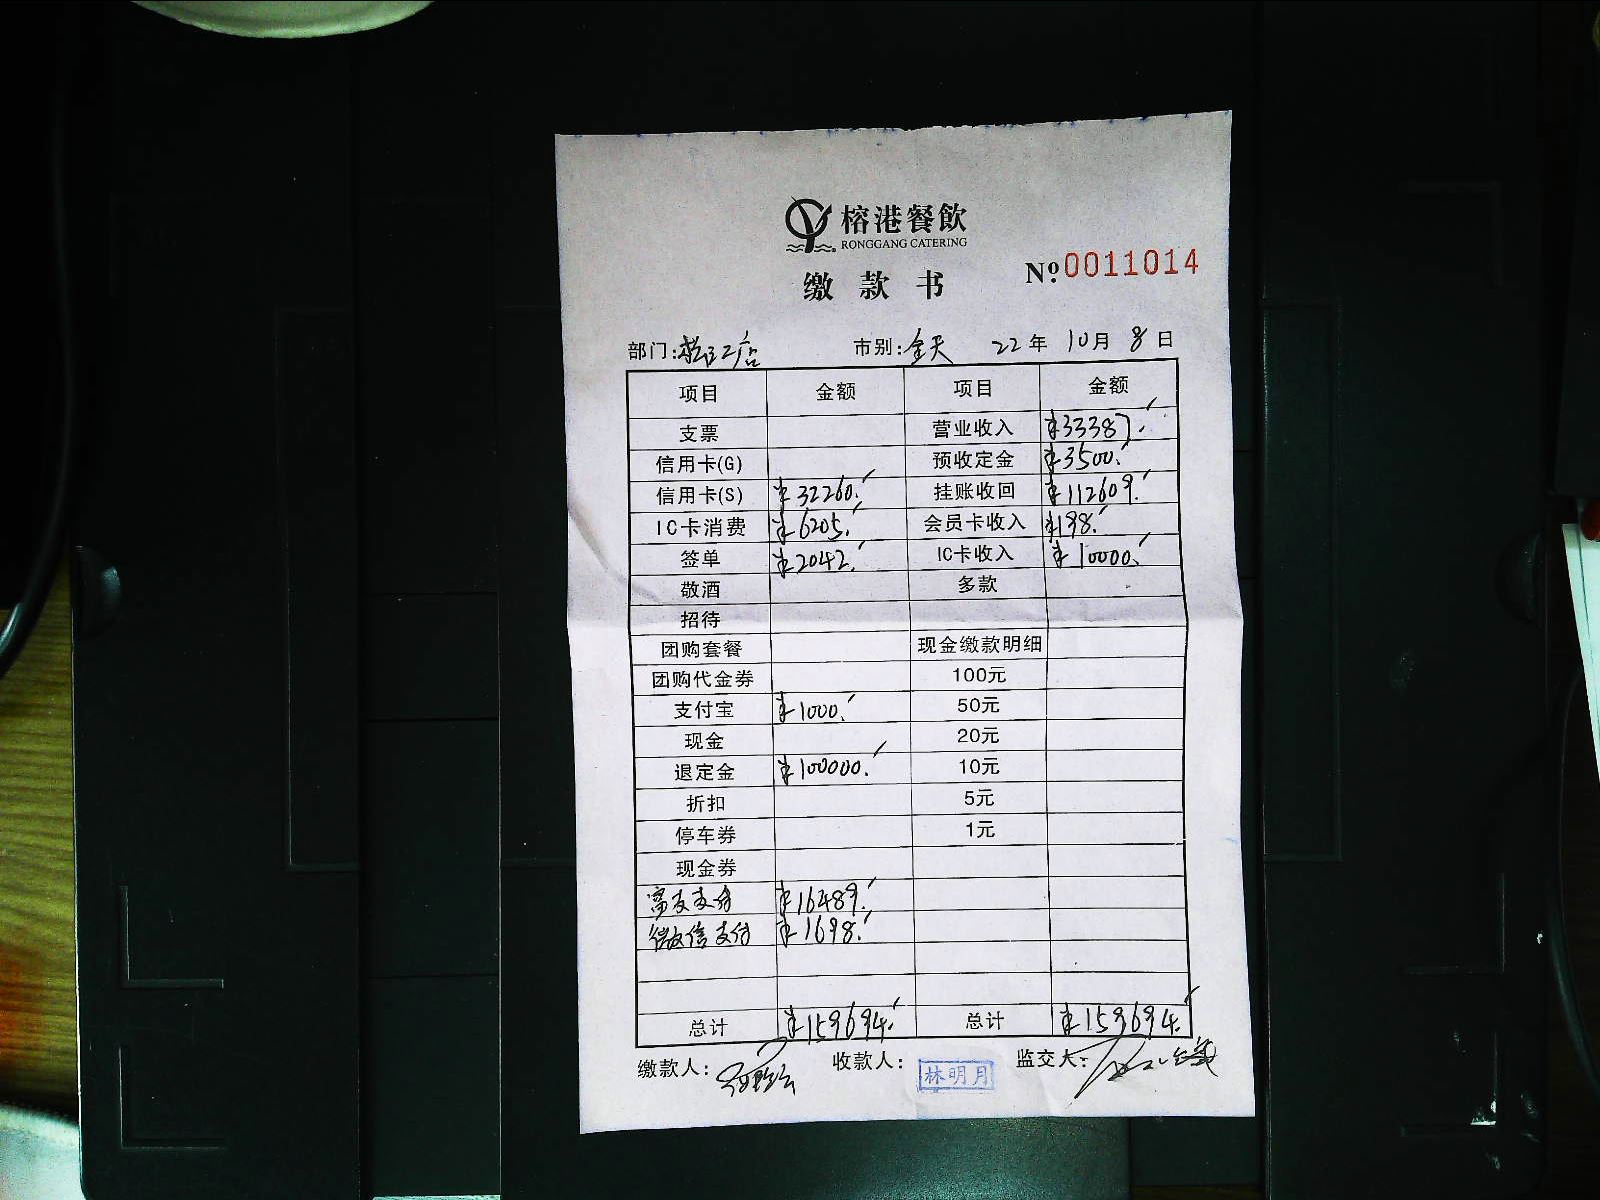 榕港餐飲
RONGGANG CATERING
缴款书 Nº 0011014
部门:松江店 市别:全天 22年10月8日
项目 金额 项目 金额
支票 营业收入 ¥33387.
信用卡(G) 预收定金 ¥3500.
信用卡(S) ¥32260. 挂账收回 ¥112609.
IC卡消费 ¥6205. 会员卡收入 ¥198.
签单 ¥2042. IC卡收入 ¥10000.
敬酒 多款
招待
团购套餐 现金缴款明细
团购代金券 100元
支付宝 ¥1000. 50元
现金 20元
退定金 ¥100000. 10元
折扣 5元
停车券 1元
现金券
富友支付 ¥16489.
微信支付 ¥1698.
总计 ¥159694. 总计 ¥159694.
缴款人: 收款人: 林明月 监交人: